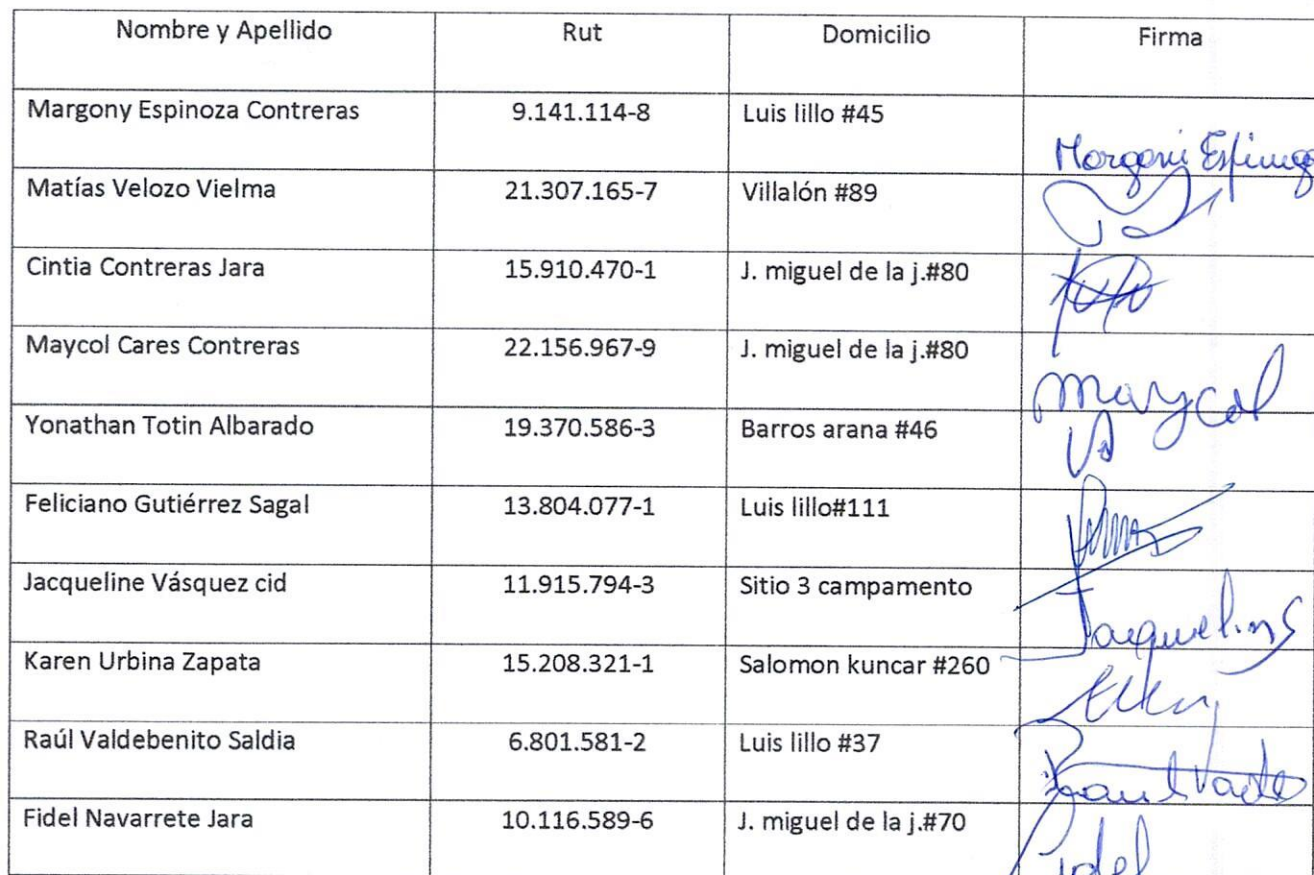 Nombre y Apellido Rut Domicilio Firma
Margony Espinoza Contreras 9.141.114-8 Luis lillo #45 Margoni
Matías Velozo Vielma 21.307.165-7 Villalón #89
Cintia Contreras Jara 15.910.470-1 J. miguel de la j.#80
Maycol Cares Contreras 22.156.967-9 J. miguel de la j.#80 Maycol
Yonathan Totin Albarado 19.370.586-3 Barros arana #46
Feliciano Gutiérrez Sagal 13.804.077-1 Luis lillo#111
Jacqueline Vásquez cid 11.915.794-3 Sitio 3 campamento
Karen Urbina Zapata 15.208.321-1 Salomon kuncar #260
Raúl Valdebenito Saldia 6.801.581-2 Luis lillo #37
Fidel Navarrete Jara 10.116.589-6 J. miguel de la j.#70 Fidel